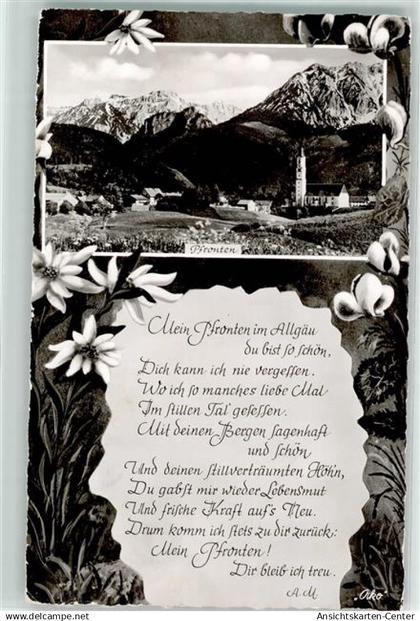 Pfronten
Mein Pfronten im Allgäu
du bist so schön,
Dich kann ich nie vergessen.
Wo ich so manches liebe Mal
Im stillen Tal gesessen.
Mit deinen Bergen sagenhaft
und schön
Und deinen stillverträumten Höhn,
Du gabst mir wieder Lebensmut
Und frische Kraft auf's Neu.
Drum komm ich stets zu dir zurück:
Mein Pfronten!
Dir bleib ich treu.
A. M.
Oiko
Ansichtskarten-Center